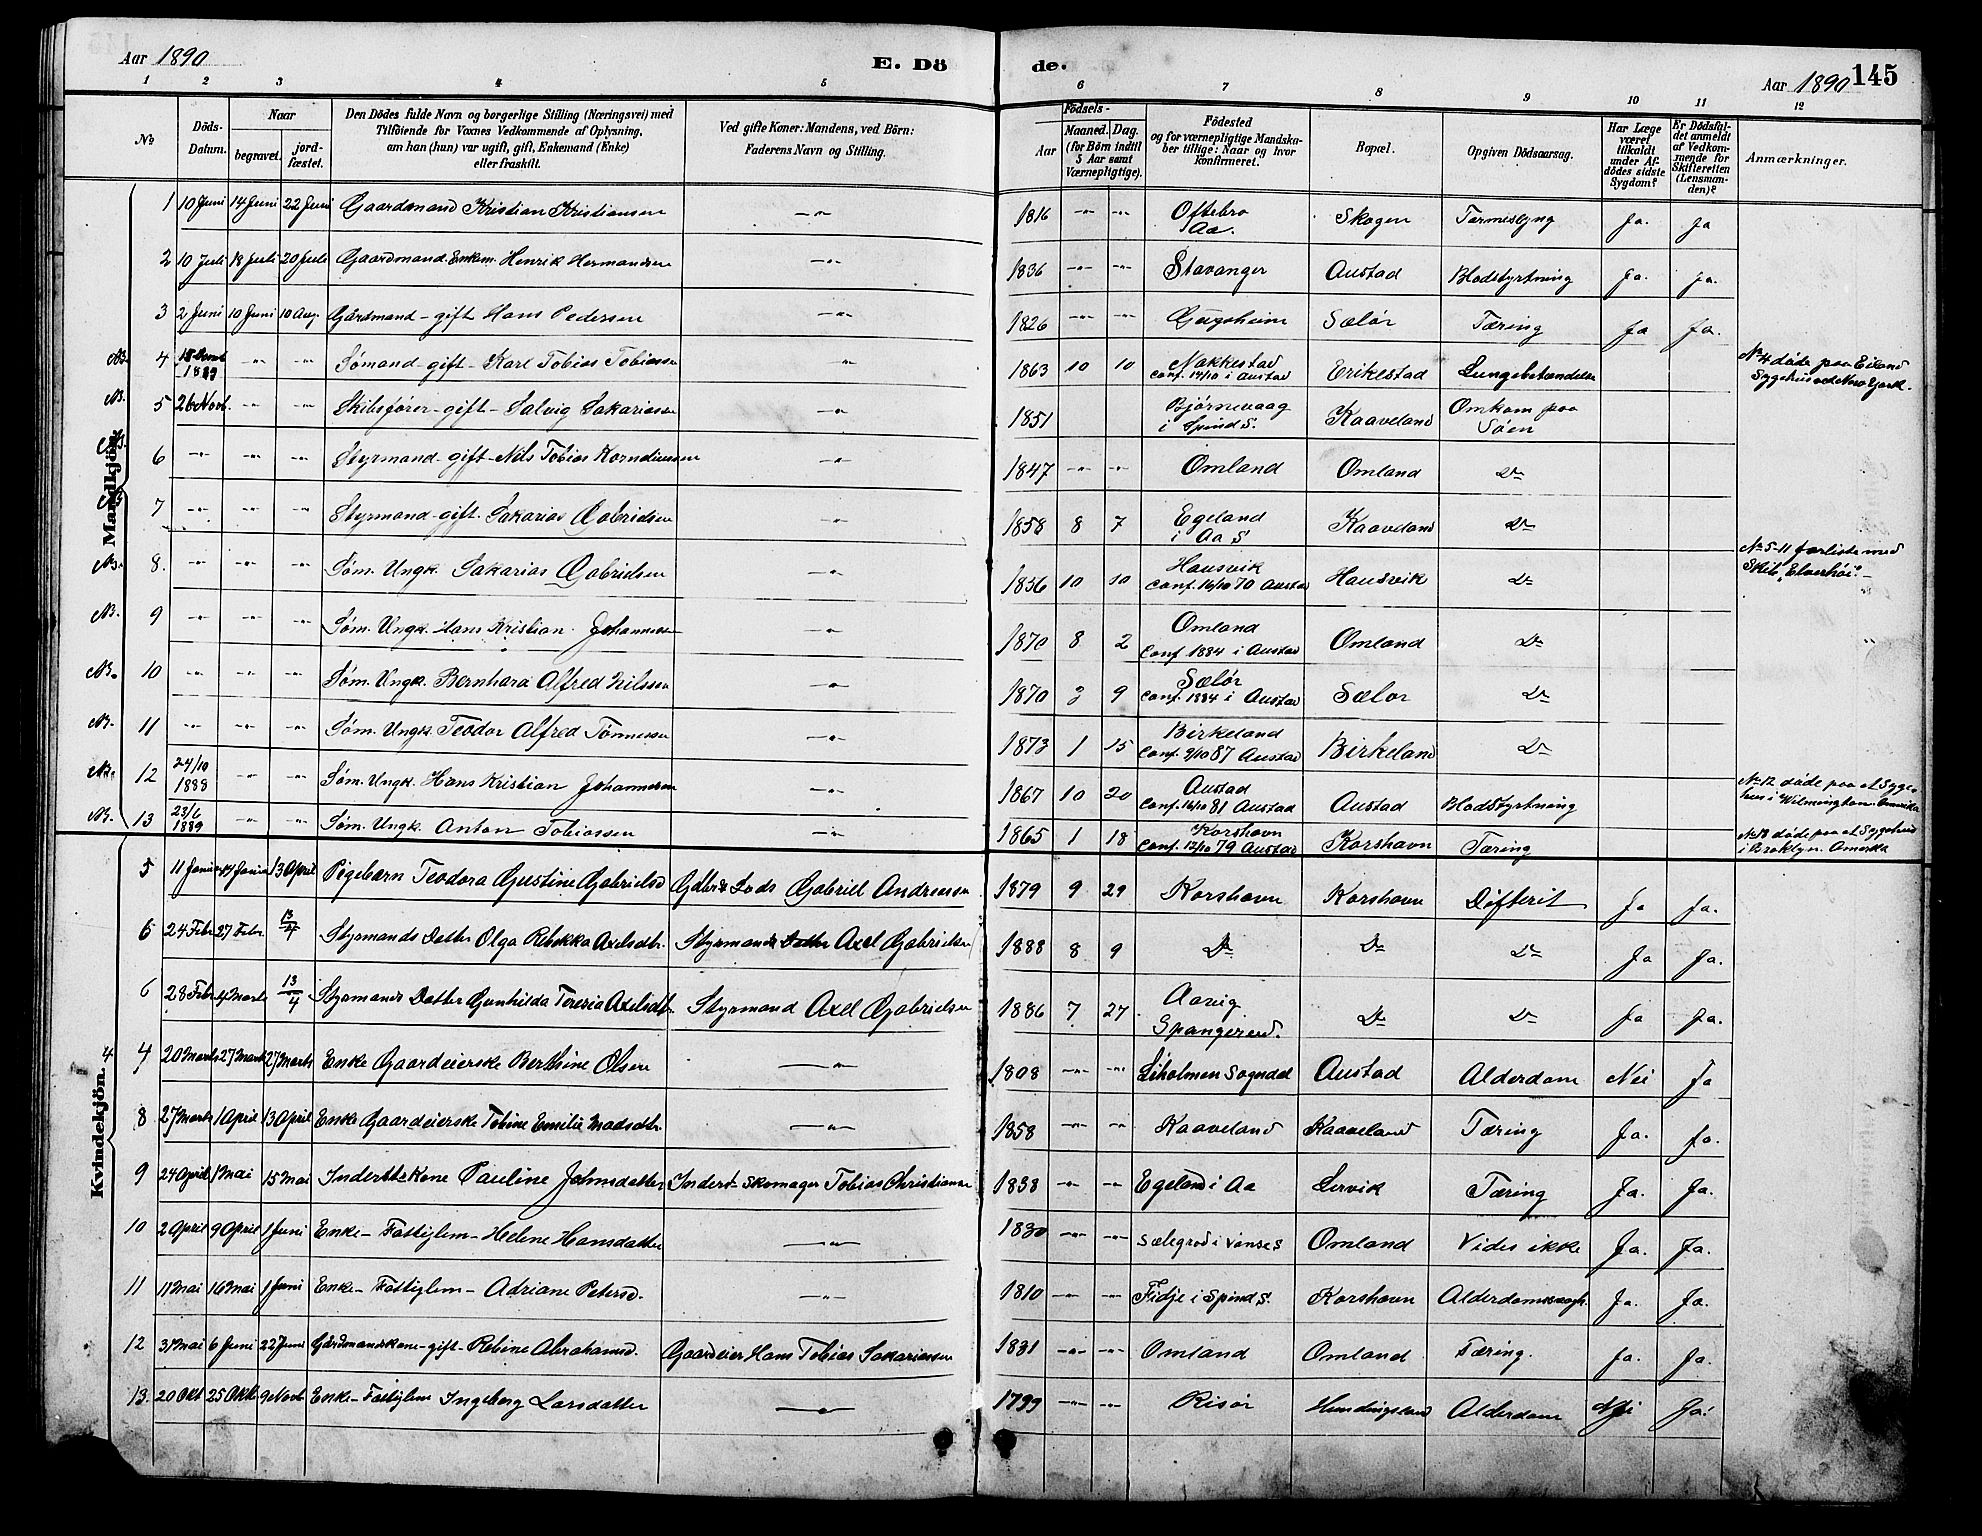 Aar 1890
E. Dö
de.
Aar 1890
145
1 2 3 4 5 6 7 8 9 10 11 12
No
Döds-Datum.
Naar
begravet.
jord-fæstet.
Den Dödes fulde Navn og borgerlige Stilling (Næringsvei) med
Tilföiende for Voxnes Vedkommende af Oplysning,
om han (hun) var ugift, gift, Enkemand (Enke)
eller fraskilt.
Ved gifte Koner: Mandens, ved Börn:
Faderens Navn og Stilling.
Födsels-
Aar
Maaned. Dag.
(for Börn indtil
5 Aar samt
Værnepligtige).
Födested
og for værnepligtige Mandska-
ber tillige: Naar og hvor
Konfirmeret.
Bopæl.
Opgiven Dödsaarsag.
Har Læge
været
tilkaldt
under Af-
dödes sidste
Sygdom?
Er Dödsfal-
det anmeldt
af Vedkom-
mende for
Skifteretten
(Lensman-
den)?
Anmærkninger.
Mandkjön.
1 10 Juni 14 Juni 22 Juni Gaardmand Kristian Kristiansen -"- 1816 -"- -"- Oftebro Aa. Skogen Tarmeslyng Ja. Ja
2 10 Juli 18 Juli 20 Juli Gaardmand Enkem. Henrik Hermandsen -"- 1836 -"- -"- Stavanger Austad Blodstyrtning Ja. Ja.
3 2 Juni 10 Juni 10 Aug. Gårdmand - gift Hans Pedersen -"- 1826 -"- -"- Sælør Tæring Ja Ja.
NB. 4 1889 -"- -"- Sømand - gift - Karl Tobias Tobiassen -"- 1863 10 10 Nakkestad Conf. 14/10 i Austad Erikestad Lungebetændelse
No 4 døde paa Eiland
NB. 5 26 Novb. -"- -"- Skibsfører - gift - Salvig Sakariassen -"- 1851 Bjørnevaag i Spind S. Kaaveland Omkom paa Søen
6 -"- -"- -"- Styrmand - gift - Nils Tobias Korneliussen -"- 1847 -"- -"- Omland Omland Do
7 -"- -"- -"- Styrmand - gift. Sakarias Gabrielsen -"- 1858 8 7 Egeland i Aa S Kaaveland Do
NB. 8. -"- -"- -"- Søm. Ungk. Sakarias Gabrielsen -"- 1856 10 10 Hausvik Conf. 16/10 70 Austad Hausvik Do
No 5-11 forliste med
Skib "Elverhøi".-
NB. 9 -"- -"- -"- Søm. Ungk. Hans Kristian Johannesen -"- 1870 8 2 Omland Conf 1884 i Austad Omland Do
NB. 10 -"- -"- -"- Søm. Ungk. Bernhard Alfred Nilssen -"- 1870 3 9 Sælør Conf. 1884 i Austad Sælør Do
NB. 11 -"- -"- -"- Søm. Ungk. Teodor Alfred Tønnessen -"- 1873 1 15 Birkeland Conf. 2/10 87 Austad Birkeland Do
NB. 12 24/10 1888 -"- -"- Søm. Ungk. Hans Kristian Johannesen -"- 1867 10 20 Austad Conf. 16/10 81 Austad Austad Blodstyrtning
No 12 døde paa et Syge-
hus i Wilmington. Amerika
NB. 13 23/6 1889 -"- -"- Søm. Ungk. Anton Tobiassen -"- 1865 1 18 Korshavn Conf. 12/10 79 Austad Korshavn Tæring
No 13 døde paa et Sygehus
i Broklyn. Amerika
Kvindekjön.
5 11 Janu 14 Janu 13 April Pigebarn Teodora Gustine Gabrielsd Lods Gabriel Andreassen 1879 9 29 Korshavn Korshavn Difterit Ja Ja.
6 24 Febr 27 Febr. 13/4 Styrmands Datter Olga Rebekka Axelsdtr. Styrmands Datter Axel Gabrielsen 1888 8 9 Do Do Do Ja Ja.
6 28 Febr 4 Marts 13/4 Styrmands Datter Gunhilda Teresia Axelsdtr. Styrmand Axel Gabrielsen 1886 7 27 Aavig Spangereid. Do Do Ja Ja.
4 20 Marts 27 Marts 27 Marts Enke Gaardeierske Berthine Olsen -"- 1808 -"- -"- Liholmen Sogndal Austad Alderdom Nei Ja
8 27 Marts 1 April 13 April Enke Gaardeierske Tobine Emilie Madsdtr. -"- 1858 -"- -"- Kaaveland Kaaveland Tæring Ja. Ja.
9 24 April 1 Mai 15 Mai Inderst Kone Pauline Johnsdatter Inderst Skomager Tobias Christiansen 1838 -"- -"- Egeland i Aa Lervik Tæring Ja. Ja.
10 2 April 9 April 1 Juni Enke - Fattiglem - Helene Hansdatter -"- 1830 -"- -"- Sælegrod i Vanse S Omland Vides ikke Ja. Ja.
11 11 Mai 16 Mai 1 Juni Enke - Fattiglem - Adriane Petersd. -"- 1810 -"- -"- Fidje i Spind S. Korshavn Alderdomssvagh. Ja. Ja.
12 31 Mai 6 Juni 22 Juni Gårdmandskone - gift - Rebine Abrahamsd. Gaardeier Hans Tobias Sakariassen 1831 -"- -"- Omland Omland Tæring. Ja. Ja.
13. 20 Okt 25 Okt 9 Novb Enke - Fattiglem Ingeborg Larsdatter -"- 1799 -"- -"- Risør Alderdom Nei Ja.